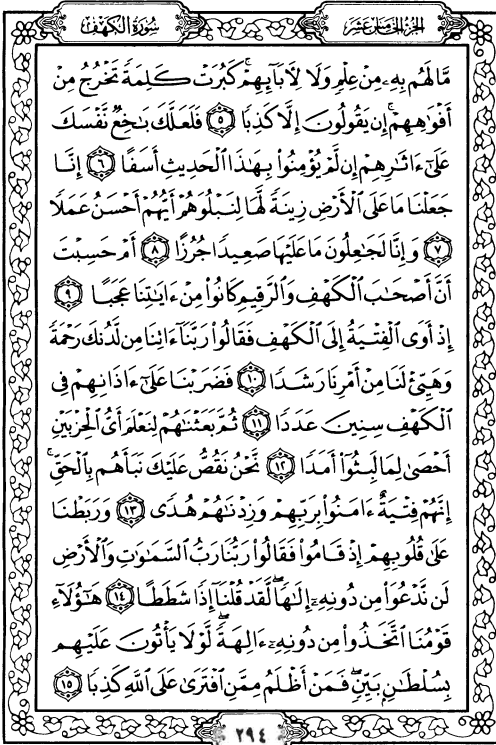 سُورَةُ الكَهْفِ
الجُزْءُ الخَامِسَ عَشَرَ
مَّا لَهُم بِهِۦ مِنْ عِلْمٍ وَلَا لِأٓبَآئِهِمْ ۚ كَبُرَتْ كَلِمَةً تَخْرُجُ مِنْ
أَفْوَٰهِهِمْ ۚ إِن يَقُولُونَ إِلَّا كَذِبًا ٥ فَلَعَلَّكَ بَٰخِعٌ نَّفْسَكَ
عَلَىٰٓ ءَاثَٰرِهِمْ إِن لَّمْ يُؤْمِنُوا۟ بِهَٰذَا ٱلْحَدِيثِ أَسَفًا ٦ إِنَّا
جَعَلْنَا مَا عَلَى ٱلْأَرْضِ زِينَةً لَّهَا لِنَبْلُوَهُمْ أَيُّهُمْ أَحْسَنُ عَمَلًا
٧ وَإِنَّا لَجَٰعِلُونَ مَا عَلَيْهَا صَعِيدًا جُرُزًا ٨ أَمْ حَسِبْتَ
أَنَّ أَصْحَٰبَ ٱلْكَهْفِ وَٱلرَّقِيمِ كَانُوا۟ مِنْ ءَايَٰتِنَا عَجَبًا ٩
إِذْ أَوَى ٱلْفِتْيَةُ إِلَى ٱلْكَهْفِ فَقَالُوا۟ رَبَّنَآ ءَاتِنَا مِن لَّدُنكَ رَحْمَةً
وَهَيِّئْ لَنَا مِنْ أَمْرِنَا رَشَدًا ١٠ فَضَرَبْنَا عَلَىٰٓ ءَاذَانِهِمْ فِى
ٱلْكَهْفِ سِنِينَ عَدَدًا ١١ ثُمَّ بَعَثْنَٰهُمْ لِنَعْلَمَ أَىُّ ٱلْحِزْبَيْنِ
أَحْصَىٰ لِمَا لَبِثُوٓا۟ أَمَدًا ١٢ نَّحْنُ نَقُصُّ عَلَيْكَ نَبَأَهُم بِٱلْحَقِّ ۚ
إِنَّهُمْ فِتْيَةٌ ءَامَنُوا۟ بِرَبِّهِمْ وَزِدْنَٰهُمْ هُدًى ١٣ وَرَبَطْنَا
عَلَىٰ قُلُوبِهِمْ إِذْ قَامُوا۟ فَقَالُوا۟ رَبُّنَا رَبُّ ٱلسَّمَٰوَٰتِ وَٱلْأَرْضِ
لَن نَّدْعُوَا۟ مِن دُونِهِۦٓ إِلَٰهًا ۖ لَّقَدْ قُلْنَآ إِذًا شَطَطًا ١٤ هَٰٓؤُلَآءِ
قَوْمُنَا ٱتَّخَذُوا۟ مِن دُونِهِۦٓ ءَالِهَةً ۖ لَّوْلَا يَأْتُونَ عَلَيْهِم
بِسُلْطَٰنٍۭ بَيِّنٍ ۖ فَمَنْ أَظْلَمُ مِمَّنِ ٱفْتَرَىٰ عَلَى ٱللَّهِ كَذِبًا ١٥
٢٩٤